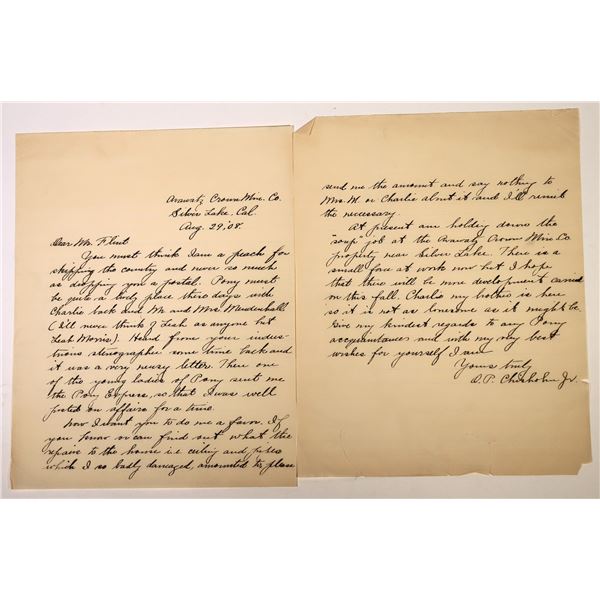 Crown Mine. Co.
Silver Lake. Cal.
Aug. 29, 08.
Dear Mr. Flint
You must think I am a peach for
skipping the country and never so much
as dropping you a postal. Pony must
be quite a lively place these days with
Charlie back and Mr and Mrs. Mendenhall
(I'll never think of Leah as anyone but
Leah Morris). Heard from your indus-
trious stenographer some time back and
it was a very newsy letter. Then one
of the young ladies of Pony sent me
the Pony Express, so that I was well
posted on affairs for a time.
Now I want you to do me a favor. If
you know or can find out what the
repairs to the house i.e ceiling and
which I so badly damaged, amounted to, please
send me the amount and say nothing to
Mrs. M. or Charlie about it and I'll remit
the necessary.
At present am holding down the
"soup" job at the Crown Mine Co
property near Silver Lake. There is a
small force at work now but I hope
that there will be more development carried
on this fall. Charlie my brother is here
so it is not as lonesome as it might be.
Give my kindest regards to any Pony
acquaintances and with my very best
wishes for yourself I am
Yours truly
O.P. Chisholm Jr.